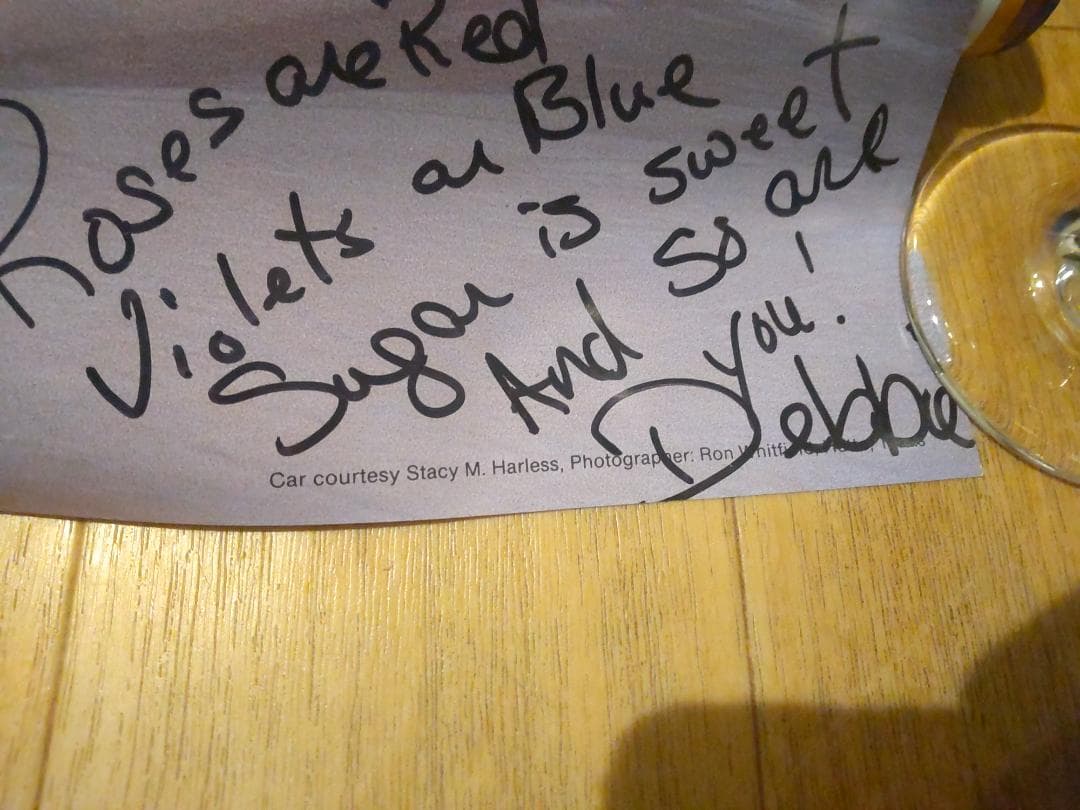 Roses are Red
Violets ar Blue
Sugar is sweet
And so are
you!
Debbie
Car courtesy Stacy M. Harless, Photographer: Ron